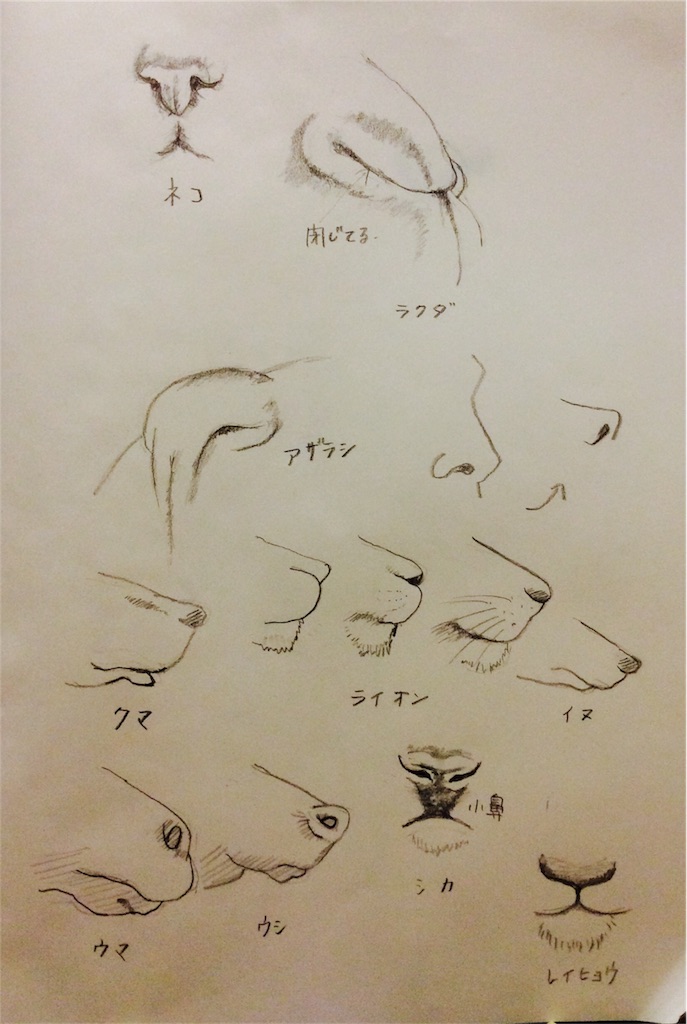 ネコ
閉じてる.
ラクダ
アザラシ
クマ
ライオン
イヌ
小鼻
シカ
ウマ
ウシ
レイヒョウ